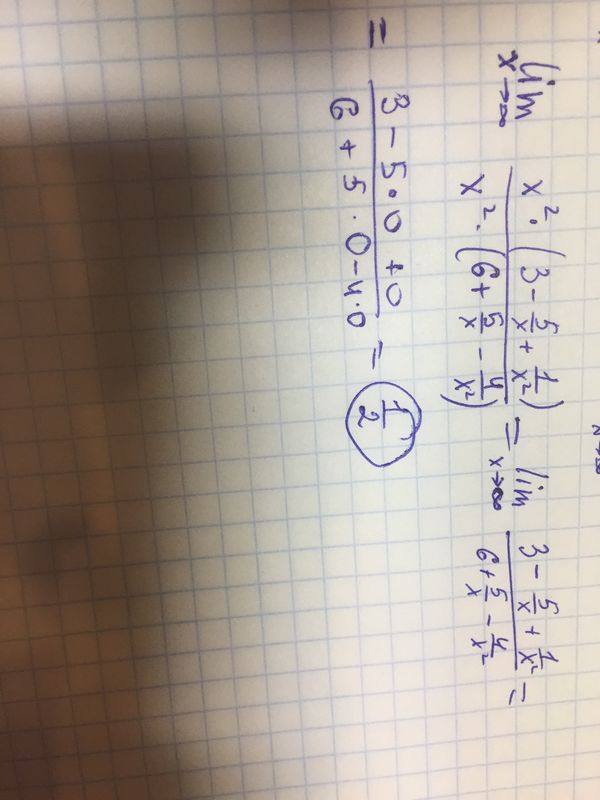 lim x→∞ x²·(3 - 5/x + 1/x²) / x²·(6 + 5/x - 4/x²) = lim x→∞ (3 - 5/x + 1/x²) / (6 + 5/x - 4/x²) =
= (3 - 5·0 + 0) / (6 + 5·0 - 4·0) = 1/2